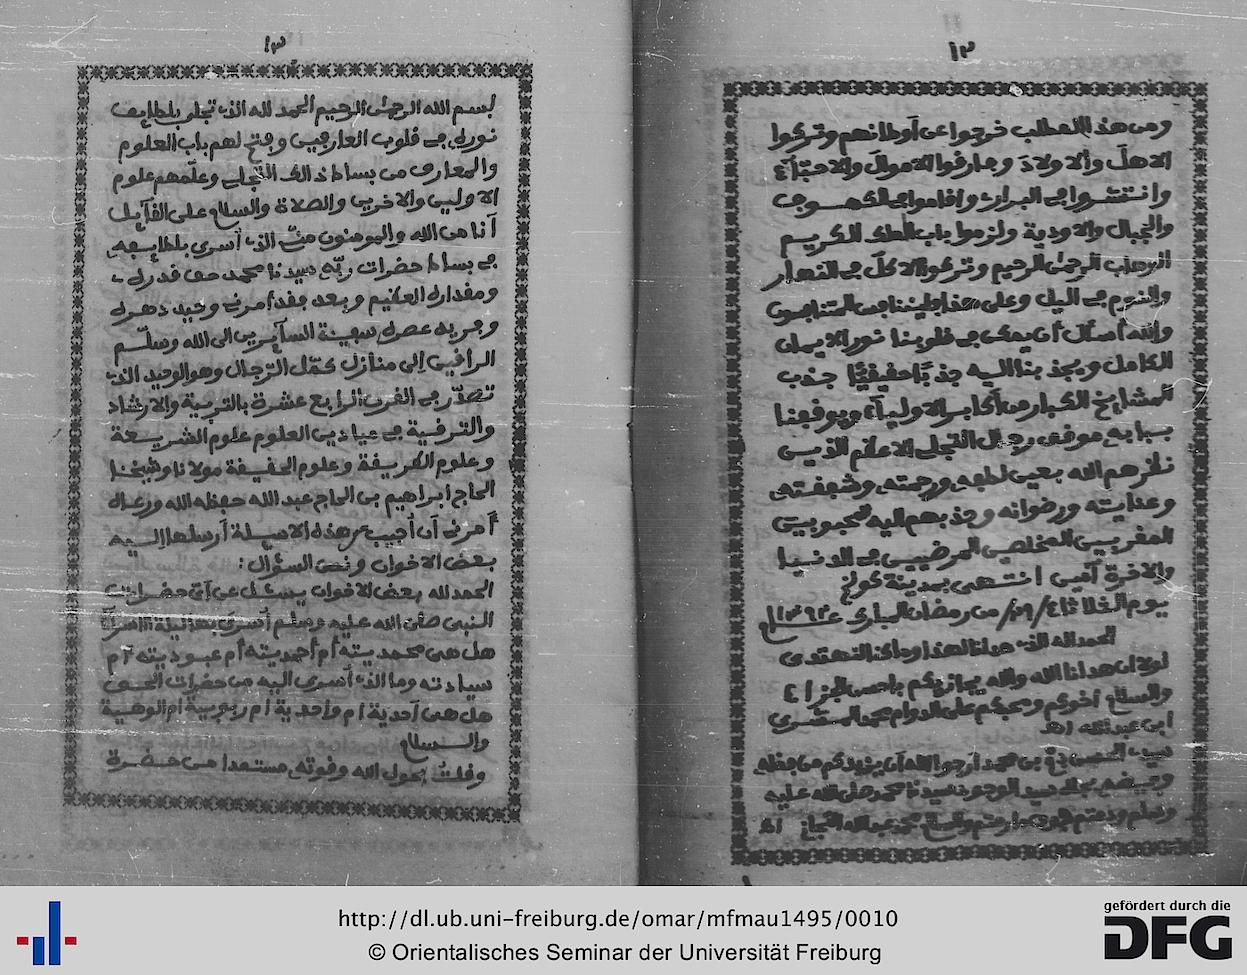 ١٢
ومن هذا المطلب خرجوا عن أوطانهم وتركوا
الاهل والاولاد وفارقوا الاموال والاحباء
وانتشروا في البراري وأقاموا في الكهوف
والجبال والاودية ولزموا باب الملك الكريم
الوهاب الرحمن الرحيم وتركوا الاكل في النهار
والنوم في اليل وعلى هذا فليتنافس المتنافسون
والله أسئل أن يمكن في قلوبنا نور الايمان
الكامل ويجذبنا اليه جذبًا حقيقيًا جذب
المشايخ الكبار من أكابر الاولياء ويوقفنا
موقف رجال التجلي الاعظم الذين
نظرهم الله بعين لطفه ورحمته وشفقته
وعنايته ورضوانه وجذبهم اليه محبوبين
المقربين المخلصين المرضيين في الدنيا
والاخرة آمين انتهى بمدينة كولخ
يوم الثلاثاء /٢٩/ من رمضان المبارك عــام ١٣٩٣
الحمد لله الذي هدانا لهذا وما كنا لنهتدي
لولا أن هدانا الله والله يجازيكم باحسن الجزاء
والسلام أخوكم ومحبكم على الدوام محمد
ابن عبد الله اهـ
بن محمد أرجو الله أن يزيدكم من فضله
سيد الوجود سيدنا محمد صلى الله عليه
وسلم
١٣
بسم الله الرحمن الرحيم الحمد لله الذي تجلى بلطايف
نوره في قلوب العارفين وفتح لهم باب العلوم
والمعارف من بساط ذالك التجلي وعلّمهم علوم
الاولين والاخرين والصلاة والسلام على القآيل
أنا من الله والمومنون منّي الذي أسري بلطايفه
في بساط حضرات ربّه سيدنا محمد حق قدره
ومقداره العظيم وبعد فقد أمرني وحيد دهره
وفريد عصره سفينة السآيرين الى الله وسلّم
الراقين إلى منازل كمّل الرجال وهو الوحيد الذي
تصدّر في القرن الرابع عشرة بالتربية والارشاد
والترقية في ميادين العلوم علوم الشريعة
وعلوم الطريقة وعلوم الحقيقة مولانا وشيخنا
الحاج ابراهيم بن الحاج عبد الله حفظه الله ورعاه
أمرني أن أجيب عن هذه الاسيلة أرسلها إليه
بعض الاخوان ونص السؤال:
الحمد لله بعض الاخوان يسئل عن أيّ حضرات
النبي صلّى الله عليه وسلم أسري بها ليلة الاسرآ
هل هي محمديته أم أحمديته أم عبوديته أم
سيادته وما الذي أسري اليه من حضرات الحق
هل هي أحدية أم واحدية أم ربوبية أم الوهية
والسلام
وقلت بحول الله وقوته مستمدا من حضرة
http://dl.ub.uni-freiburg.de/omar/mfmau1495/0010
© Orientalisches Seminar der Universität Freiburg
gefördert durch die
DFG